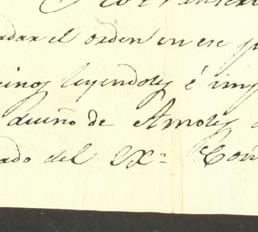 dar el orden en ese
cinos leyendoles é imp
dueño de Amoles
ado del Ex.ᵃ Com